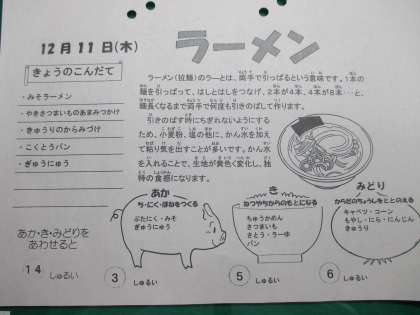 12月11日(木)
ラーメン
きょうのこんだて
・みそラーメン
・やきさつまいものあまみつかけ
・きゅうりのからみづけ
・こくとうパン
・ぎゅうにゅう
ラーメン(拉麺)のラーとは、両手で引っぱるという意味です。1本の
麺を引っぱって、はしとはしをつなげ、2本が4本、4本が8本…と、
麺長くなるまで両手で何度も引きのばして作ります。
引きのばす時にちぎれないようにする
ため、小麦粉、塩の他に、かん水を加え
て粘り気を出すことが多いです。かん水
を入れることで、生地が黄色く変化し、独
特の食感になります。
あか
ち・にく・ほねをつくる
ぶたにく・みそ
ぎゅうにゅう
き
ねつやちからのもとになる
ちゅうかめん
さつまいも
さとう・ラーゆ
パン
みどり
からだのちょうしをととのえる
キャベツ・コーン
もやし・にら・にんじん
きゅうり
あか・き・みどりを
あわせると
14 しゅるい
3 しゅるい
5 しゅるい
6 しゅるい